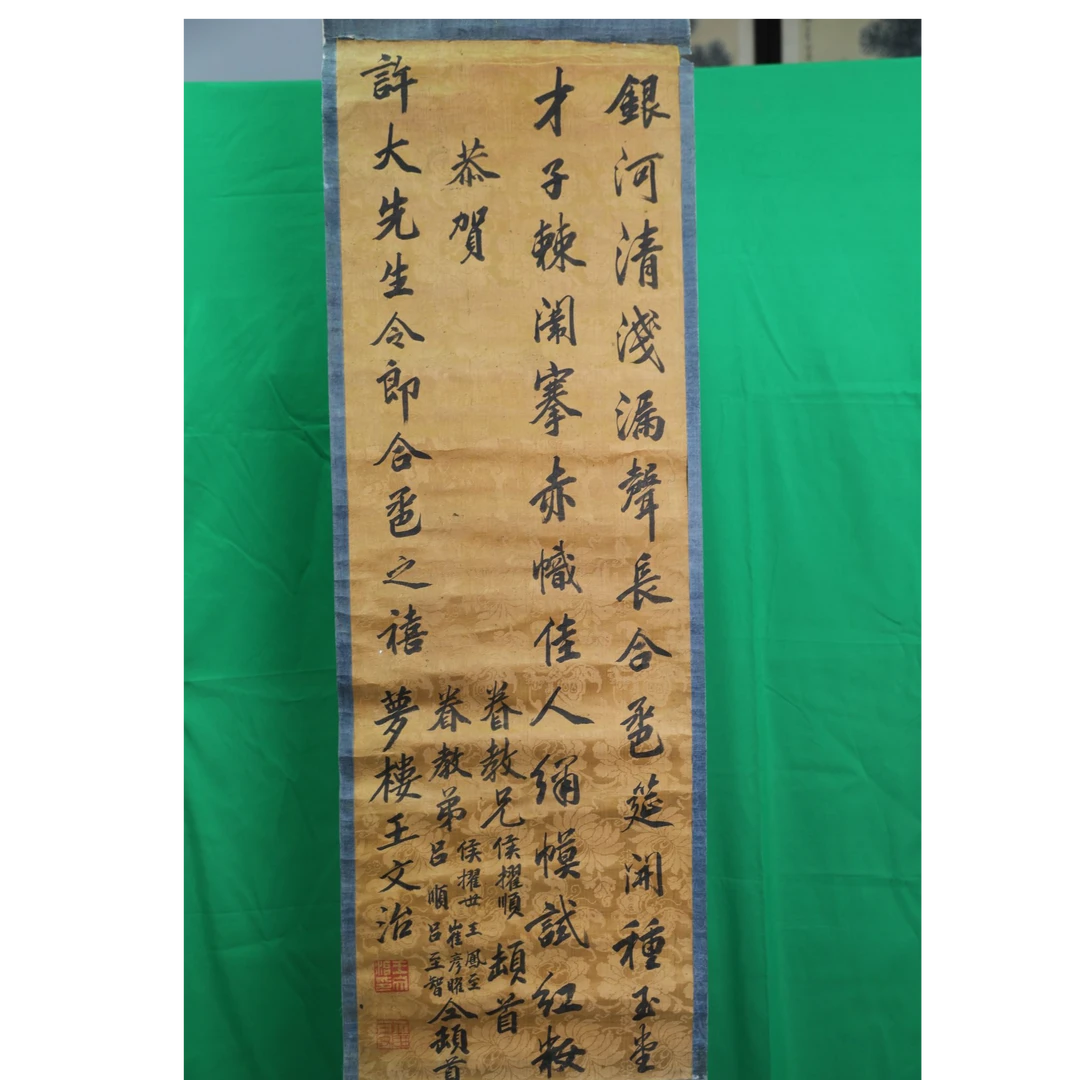 銀河清淺漏聲長合卺筵開種玉堂
才子棘闈搴赤幟佳人綃幙試紅妝
恭賀
許大先生令郎合卺之禧
眷教兄侯擢順頓首
眷教弟
侯擢世
王鳳至
崔彥曜
呂順
呂至智
仝頓首
夢樓王文治